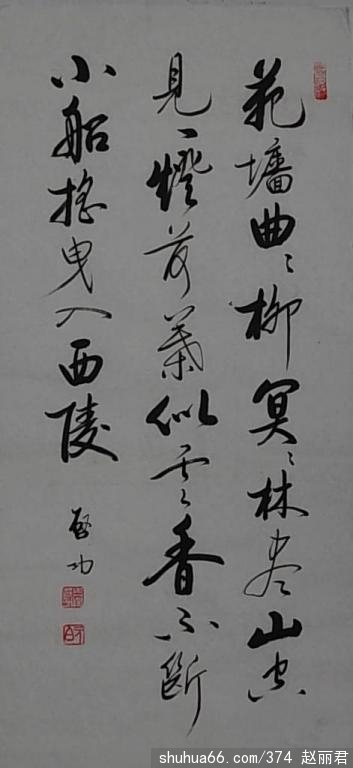 苑墻曲〻柳冥〻林盡山空
見一燈荷葉似雲香不斷
小船搖曳入西陵
啓功
shuhua66.com/374 赵丽君